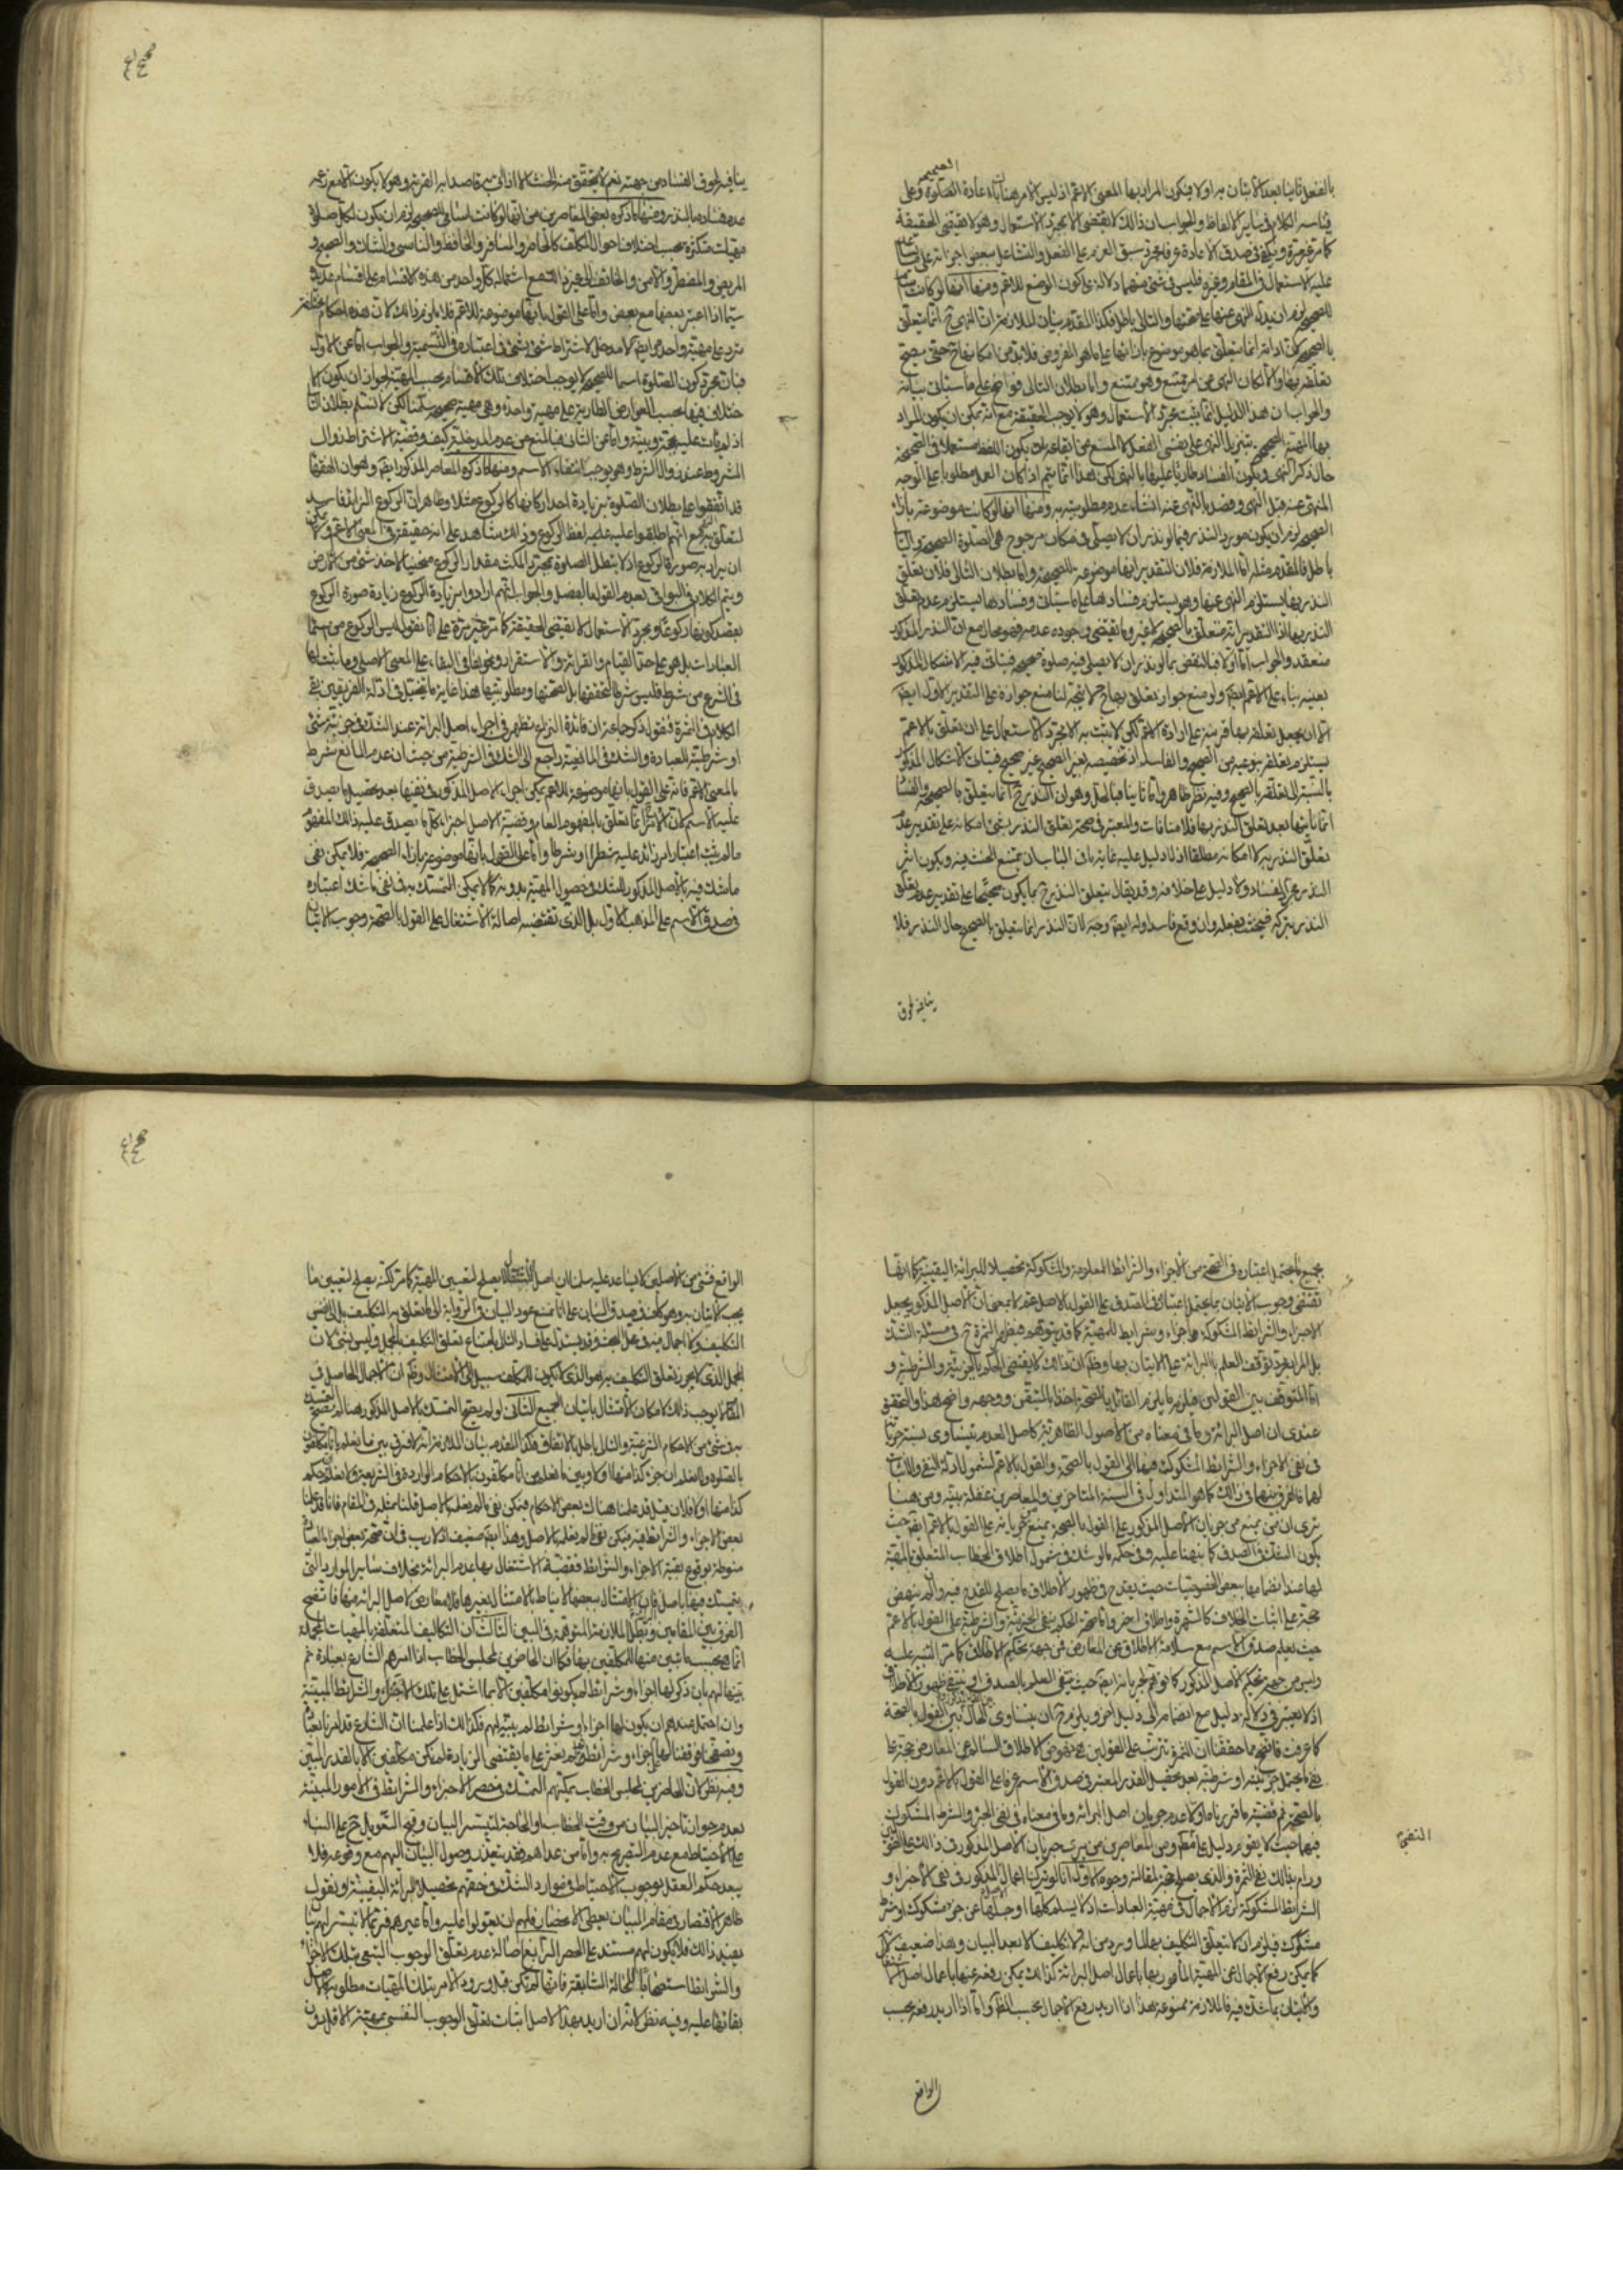 بالفعل ثانيا بعد الاتيان به اولا فيكون المراد بها المعنى الاعم اذ ليس الامر هنا باعادة الصلوة وعلى
قياسه الكلام في ساير الالفاظ والجواب ان ذلك لا يقتضي الا مجرد الاستعمال وهو لا يقتضي الحقيقة
كما مر غير مرة ويكفي في صدق الاعادة عرفا مجرد سبق العزم على الفعل والتشاغل ببعض اجزائه على
عليه الاستعمال في المقام وغيره فليس في شئ منهما دلالة على كون الوضع للاعم ومنها انها لو كانت
للصحيحة لزم ان يدل النهي عنها على صحتها والتالي باطل فكذا المقدم بيان الملازمة ان النهي ح انما يتعلق
بالصحيحة اذ انما يتعلق بما هو موضوع بازائها على ما هو الفرض فلا بد من امكانها ح حتى يصح
تعلقه بها والا لكان النهي عن امر ممتنع وهو ممتنع واما بطلان التالي فواضح على ما سيأتي بيانه
والجواب ان هذا الدليل انما يثبت مجرد الاستعمال وهو لا يوجب الحقيقة مع انه يمكن ان يكون المراد
بها المهية الصحيحة بتنزيل النهي على نفس الفعل لا المنع عن ايقاعه بان يكون اللفظ مستعملا في الصحيحة
حال ذكر النهي ويكون الفساد طاريا عليها بالنهي لكن هذا انما يتم اذا كان الفعل مطلوبا على الوجه
المنهي عنه قبل النهي وقصد بالنهي عنه انشاء عدم مطلوبيته به ومنها انها لو كانت موضوعة بازاء
الصحيحة لزم ان يكون مورد النذر فيما لو نذر ان لا يصلي في مكان مرجوح هي الصلوة الصحيحة والتالي
باطل فالمقدم مثله اما الملازمة فلان التقدير انها موضوعة للصحيحة واما بطلان التالي فلان تعلق
النذر بها يستلزم النهي عنها وهو يستلزم فسادها على ما سيأتي وفسادها يستلزم عدم تعلق
النذر بها اذ التقدير انه متعلق بالصحيحة لا غير وما يقتضي وجوده عدمه فهو محال مع ان النذر المذكور
منعقد والجواب اما اولا فبالنقض بما لو نذر ان لا يصلي فيه صلوة صحيحة فيتأتى فيه الاشكال المذكور
بعينه بناء على الاعم ايض ولو منع جواز تعلقه بها ح لاتجه لنا منع جوازه على التقدير الاول ايض
الا ان يجعل تعلقه بها قرينة على ارادة الاعم لكن لا يثبت به الا مجرد الاستعمال على ان تعلقه بالاعم
يستلزم تعلقه بنوعيه من الصحيح والفاسد اذ تخصيصه بغير الصحيح غير صحيح فيتأتى الاشكال المذكور
بالنسبة الى تعلقه بالصحيح وفيه نظر ظاهر واما ثانيا فبالحل وهو ان النذر ح انما يتعلق بالصحيحة والفساد
انما يأتيها بعد تعلق النذر بها فلا منافاة والمعتبر في صحة تعلق النذر بشئ امكانه على تقدير عدم
تعلق النذر به لا امكانه مطلقا اذ لا دليل عليه غاية ما في الباب ان يمتنع الحنث فيه ويكون اثر
النذر مجرد الفساد ولا دليل على خلافه وقد يقال يتعلق النذر ح بما يكون صحيحا على تقدير عدم تعلق
النذر بتركه فيحنث بفعله وان وقع فاسدا وله ايض وجه لان النذر انما يتعلق بالصحيح حال النذر فلا
ينافيه لحوق
ينافيه لحوق الفساد من جهته نعم لا يتحقق منه الحنث الا اذا اتى به قاصدا به القربة وهو لا يكون الا مع زعمه
عدم فساده بالنذر ومنها ما ذكره بعض المعاصرين من انها لو كانت اسامي للصحيحة لزم ان يكون لكل صلوة
مهيات متكثرة بحسب اختلاف احوال المكلف كالحاضر والمسافر والحافظ والناسي والشاك والصحيح و
المريض والمضطر والامن والخائف الى غير ذلك مع اشتمال كل واحد من هذه الاقسام على اقسام عديدة
سيما اذا اعتبر بعضها مع بعض واما على القول بانها موضوعة للاعم فلا يلزم ذلك لان هذه احكام مختلفة
ترد على مهية واحدة وايض لا مدخل لاشتراط شئ بشئ في اعتباره في التسمية والجواب اما عن الاول
فبان مجرد كون الصلوة اسما للصحيحة لا يوجب اختلاف تلك الاقسام بحسب المهية لجواز ان يكون الا
ختلاف فيها بحسب العوارض الطارية على مهية واحدة وهي مهية صحيحة سلمنا لكن لا نسلم بطلان
اذ لم يأت عليه بحجة وبينة واما عن الثاني فبالمنع من عدم المدخلية كيف وقضية الاشتراط زوال
المشروط عند زوال الشرط وهو يوجب انتفاء الاسم ومنها ما ذكره المعاصر المذكور ايض وهو ان الفقهاء
قد اتفقوا على بطلان الصلوة بزيادة احد اركانها كالركوع مثلا وظاهر ان الركوع الزائد فاسد
لتعلق النهي به مع انهم اطلقوا عليه لفظ الركوع وذلك شاهد على انه حقيقة في المعنى الاعم ولا يمكن
ان يراد به صورة الركوع اذ لا تبطل الصلوة بمجرد المكث مقدار الركوع منحنيا لاخذ شئ من الارض
ويتم الكلام في البواقي بعدم القول بالفصل والجواب انهم ارادوا بزيادة الركوع زيادة صورة الركوع
بقصد كونها ركوعا ومجرد الاستعمال لا يقتضي الحقيقة كما مر غير مرة على انا نقول ليس الركوع من اسماء
العبادات بل هو على حد القيام والقرائة والاستقرار ونحوها في البقاء على المعنى الاصلي وما ثبت لها
في الشرع من شرط فليس شرطا لتحققها بل لصحتها ومطلوبيتها هذا غاية ما يتخيل في ادلة الفريقين بقي
الكلام في الثمرة فنقول ذكر جماعة ان فائدة النزاع تظهر في اجراء اصل البرائة عند الشك في جزئية شئ
او شرطيته للعبادة والشك في المانعية راجع الى الشك في الشرطية من حيث ان عدم المانع شرط
بالمعنى الاعم فانه على القول بانها موضوعة للاعم يمكن اجراء الاصل المذكور في نفيها بعد تحصيل ما يصدق
عليه الاسم لان الامر انما تعلق بالمفهوم العام وقضية الاصل اجزاء كل ما يصدق عليه ذلك المفهوم
ما لم يثبت اعتبار امر زائد عليه شطرا او شرطا واما على القول بانها موضوعة بازاء الصحيحة فلا يمكن نفي
ما شك فيه بالاصل المذكور للشك في حصول المهية بدونه كما لا يمكن التمسك به في نفي ما شك اعتباره
في صدق الاسم على المذهب الاول بل الذي تقتضيه اصالة الاشتغال على القول بالصحة وجوب الاتيان
بجميع ما يحتمل اعتباره في الصحة من الاجزاء والشرائط المعلومة والمشكوكة تحصيلا للبرائة اليقينية كما انها
تقتضي وجوب الاتيان بما يحتمل اعتباره في الصدق على القول بالاعم لا بمعنى ان الاصل المذكور يجعل
الاجزاء والشرائط المشكوكة اجزاء وشرايط للمهية كما قد يتوهم فيظهر الثمرة ح في مسئلة الشك
بل المراد مجرد توقف العلم بالبرائة على الاتيان بها وظ ان ذلك لا يقتضي الحكم بالجزئية والشرطية و
اما المتوقف بين القولين فيلزمه ما يلزم القائل بالصحة اخذا بالمتيقن ووجهه واضح هذا والتحقيق
عندي ان اصل البرائة وما في معناه من الاصول الظاهرية كاصل العدم يتساوى نسبة جريانها
في نفي الاجزاء والشرائط المشكوك فيها الى القول بالصحة والقول بالاعم لشمول ادلة النفي والاثبات
لهما فالفرق بينهما في ذلك كما هو المتداول في السنة المتاخرين والمعاصرين غفلة بينة ومن هنا
ترى ان من يمنع من جريان الاصل المذكور على القول بالصحة يمنع من جريانه على القول بالاعم ايض حيث
يكون الشك في الصدق كما نبهنا عليه وفي حكمه ما لو شك في شمول اطلاق الخطاب المتعلق بالمهية
لها عند انضمامها ببعض الخصوصيات حيث يقدح في ظهور الاطلاق ما يصلح للقدح فيه وان لم ينهض
حجة على اثبات الخلاف كالشهرة واطلاق اخر واما صحة الحكم بنفي الجزئية والشرطية على القول بالاعم
حيث يعلم صدق الاسم مع سلامة الاطلاق عن المعارض فمن جهة تحكيم الاطلاق كما مر التنبيه عليه
وليس من جهة تحكيم الاصل المذكور كما توهم لجريانه ايض حيث ينتفي العلم بالصدق او ينتفي ظهور الاطلاق
اذ لا يعتبر في دلالة دليل مع انضمامه الى دليل اخر ويلزم ح ان يتساوى الحال بين القول بالصحة
كما عرفت فاتضح مما حققنا ان الثمرة تترتب على القولين هي نهوض الاطلاق السالم عن المعارض حجة على
نفي ما يحتمل جزئيته او شرطيته بعد تحصيل القدر المعتبر في صدق الاسم عرفا على القول بالاعم دون القول
بالصحة ثم قضية ما قررناه اولا عدم جريان اصل البرائة وما في معناه في نفي الجزء والشرط المشكوك
فيهما حيث لا يقوم دليل على نفيهما ومن المعاصرين من يرى جريان الاصل المذكور في ذلك على القولين
ورام بذلك نفي الثمرة والذي يصلح حجة لمقالته وجوه الاول انا لو تركنا اعمال الاصل المذكور في نفي الاجزاء و
الشرائط المشكوكة لزم الاجمال في مهية العبادات اذ لا يسلم كلها او جلها عن جزء مشكوك او شرط
مشكوك فيلزم ان لا يتعلق التكليف بها لما ورد من انه لا تكليف الا بعد البيان وهذا ضعيف لانه
كما يمكن رفع الاجمال عن المهية المأمور بها باعمال اصل البرائة كذلك يمكن رفعه عنها باعمال اصل الاشتغال
والاتيان بما شك فيه فالملازمة ممنوعة هذا اذا اريد رفع الاجمال بحسب الظاهر واما اذا اريد رفعه بحسب
النفيين
الواقع
الواقع فشئ من الاصلين لا يساعد عليه سلمنا ان اصل الاشتغال لا يصلح لتعيين المهية كما مر لكنه يصلح لتعيين ما
يجب الاتيان به وهو كاف في صدق البيان على انا نمنع عود البيان في الرواية الى ما تعلق به التكليف بل الى نفس
التكليف ولا اجمال فيه في محل البحث وقد يستدل على فساد التالي بامتناع تعلق التكليف بالمجمل وليس بشئ لان
المجمل الذي لا يجوز تعلق التكليف به هو الذي لا يكون للمكلف سبيل الى الامتثال وظ ان الاجمال الحاصل في
المقام لا يوجب ذلك لامكان الامتثال باتيان الجميع الثاني لو لم يصح التمسك بالاصل المذكور هنا لم يصح التمسك
به في شئ من الاحكام الشرعية والتالي باطل بالاتفاق فكذا المقدم بيان الملازمة انه لا فرق بين ما يعلم بانا مكلفون
بالصلوة ولا نعلم ان جزء كذا منها اولا وبين ما نعلم من انا مكلفون بالاحكام الواردة في الشريعة ولا نعلم ان حكم
كذا منها اولا فان قيل قد علمنا هناك بعض الاحكام فيمكن نفي ما لم يعلم بالاصل قلنا بمثله في المقام فانا قد علمنا
بعض الاجزاء والشرائط فيمكن نفي ما لم يعلم بالاصل وهذا ايض ضعيف اذ لا ريب في ان صحة بعض اجزاء العبادة
منوطة بوقوع بقية الاجزاء والشرائط فقضية الاشتغال بها عدم البرائة بخلاف ساير الموارد التي
يتمسك فيها باصل البرائة فان الامتثال ببعضها لا يناط بالامتثال بغيرها فلا معارض لاصل البرائة فيها فاتضح
الفرق بين المقامين وبطل الملازمة المتوهمة في البين الثالث ان التكاليف المتعلقة بالمهيات المجملة
انما هي بحسب ما تبين منها للمكلفين بها فكما ان الحاضرين لمجلس الخطاب اذا امرهم الشارع بعبادة ثم
بينها لهم بان ذكر لها اجزاء وشرائط لم يكونوا مكلفين الا بما اشتمل على تلك الاجزاء والشرائط المبينة
وان احتمل عندهم ان يكون لها اجزاء وشرائط لم يبينها لهم فكذلك اذا علمنا ان الشارع قد امرنا بعبادة
وتصفحنا فوقفنا لها على اجزاء وشرائط ولم نعثر على ما يقتضي الزيادة لم نكن مكلفين الا بالقدر المبين
وفيه نظر لان الحاضرين لمجلس الخطاب يمكنهم التمسك في حصر الاجزاء والشرائط في الامور المبينة
بعدم جواز تاخير البيان عن وقت الخطاب او الحاجة لتيسر البيان وقبح التعويل ح على البناء
على الاحتياط مع عدم التصريح به واما من عداهم فقد يتعذر وصول البيان اليهم مع وقوعه فلا
يبعد حكم العقل بوجوب الاحتياط في موارد الشك في حقهم تحصيلا للبرائة اليقينية او نقول
ظاهر الاقتصار في مقام البيان يعطي الانحصار فلهم ان يعولوا عليه واما غيرهم فربما لا يتيسر لهم ما
يفيد ذلك فلا يكون لهم مستند على الحصر الرابع اصالة عدم تعلق الوجوب التبعي بتلك الاجزاء
والشرائط استصحابا للحالة السابقة فانها لم تكن قبل ورود الامر بتلك المهيات مطلوبة والاصل
بقائها عليه وفيه نظر لانه ان اريد بهذا الاصل اثبات تعلق الوجوب النفسي بمهية الاقل دون